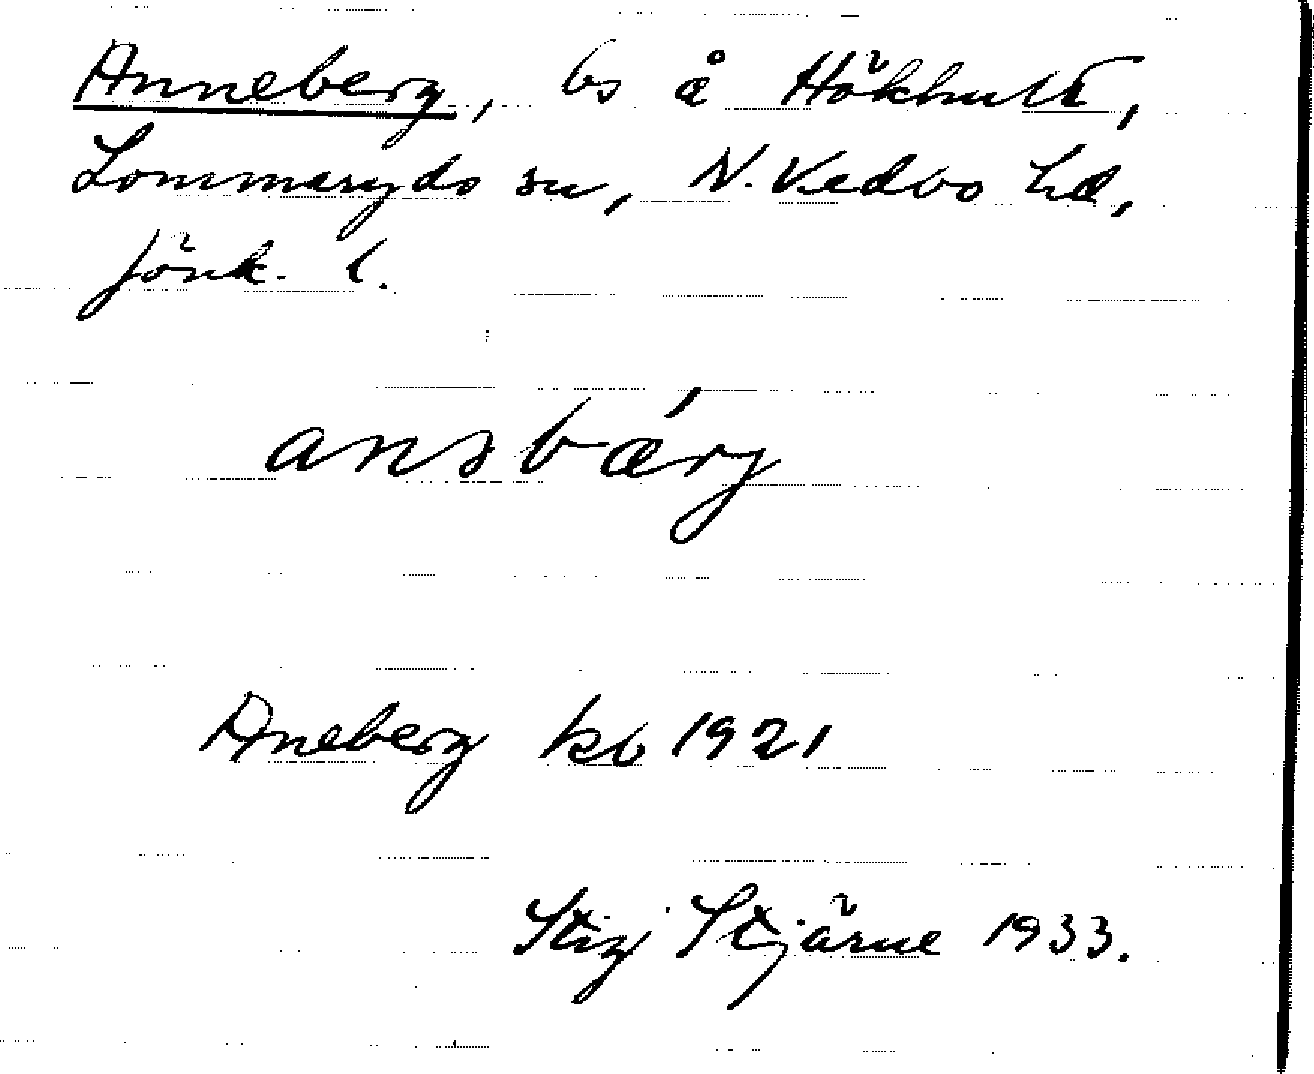 Anneberg, bs å Hökhult,
Lommaryds sn, N. Vedbo hd,
Jönk. l.
ansbǽrj
Anneberg kb 1921
Stig Stjärne 1933.